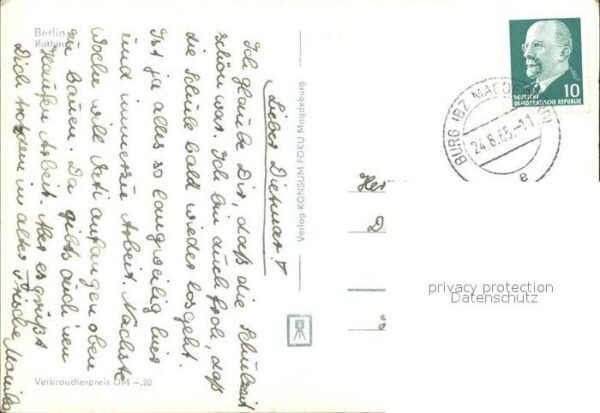 Berlin
Rathaus
Lieber Dietmar!
Ich glaube Dir, daß die Schulzeit
schön war. Ich bin auch froh, daß
die Schule bald wieder losgeht.
Ist ja alles so langweilig hier
und immerzu Arbeit. Nächste
Woche will Vati anfangen oben
zu bauen. Da gibts auch nen
Haufen Arbeit. Aber es grüßt
Dich trotzdem in alter Frische Monika
Verbraucherpreis DM -,20
Verlag KONSUM FOKU Magdeburg
10
DEUTSCHE
DEMOKRATISCHE REPUBLIK
BURG (BZ MAGDEBURG)
24.8.65.-11
e
privacy protection
Datenschutz